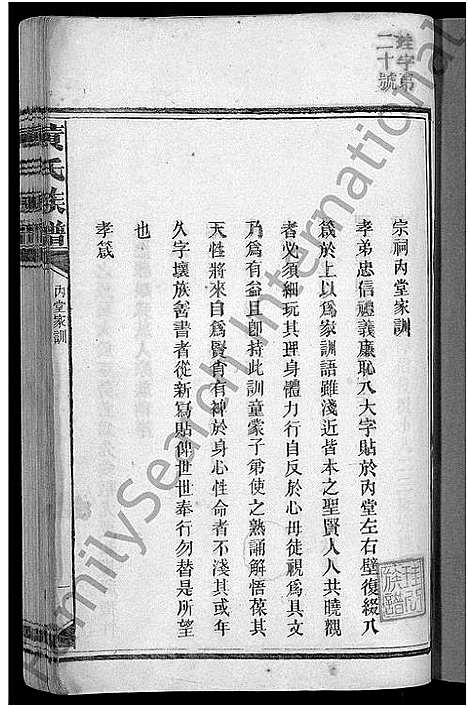 珪字第
二十號
宗祠內堂家訓
孝弟忠信禮義廉恥八大字貼於內堂左右壁復綴八
箴於上以爲家訓語雖淺近皆本之聖賢人人共曉觀
者必須細玩其理身體力行自反於心毋徒視爲具文
乃爲有益且卽持此訓童蒙子弟使之熟誦解悟葆其
天性將來自爲賢肖有裨於身心性命者不淺其或年
久字壞族善書者從新寫貼俾世世奉行勿替是所望
也
孝箴
黃氏族譜
內堂家訓
一
族譜
FamilySearch International